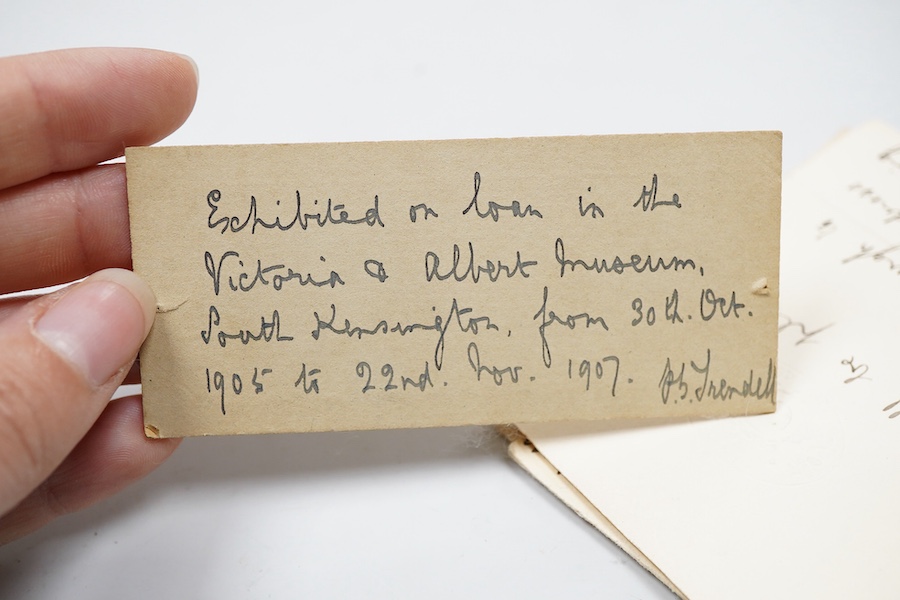 Exhibited on loan in the
Victoria & Albert Museum,
South Kensington, from 30th. Oct.
1905 to 22nd. Nov. 1907. P.G. Trendell